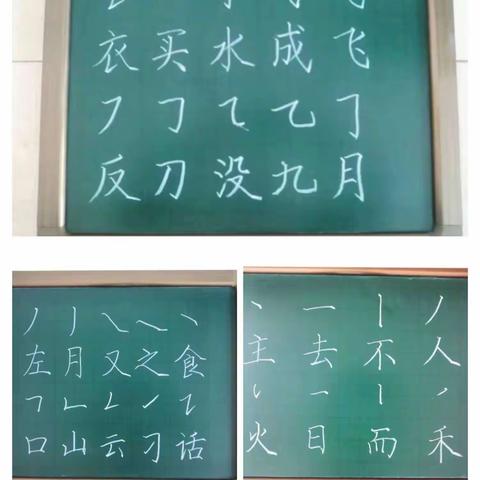 衣 买 水 成 飞
㇇ 𠃌 ㇈ 乙 亅
反 刀 没 九 月
丿 丿 ㇏ ㇏ 丶
左 月 又 之 食
𠃍 𠃊 ㇜ ㇀ ㇊
口 山 云 刁 话
丶 一 丨 丿
主 去 不 人
丶 一 丨 丿
火 日 而 禾